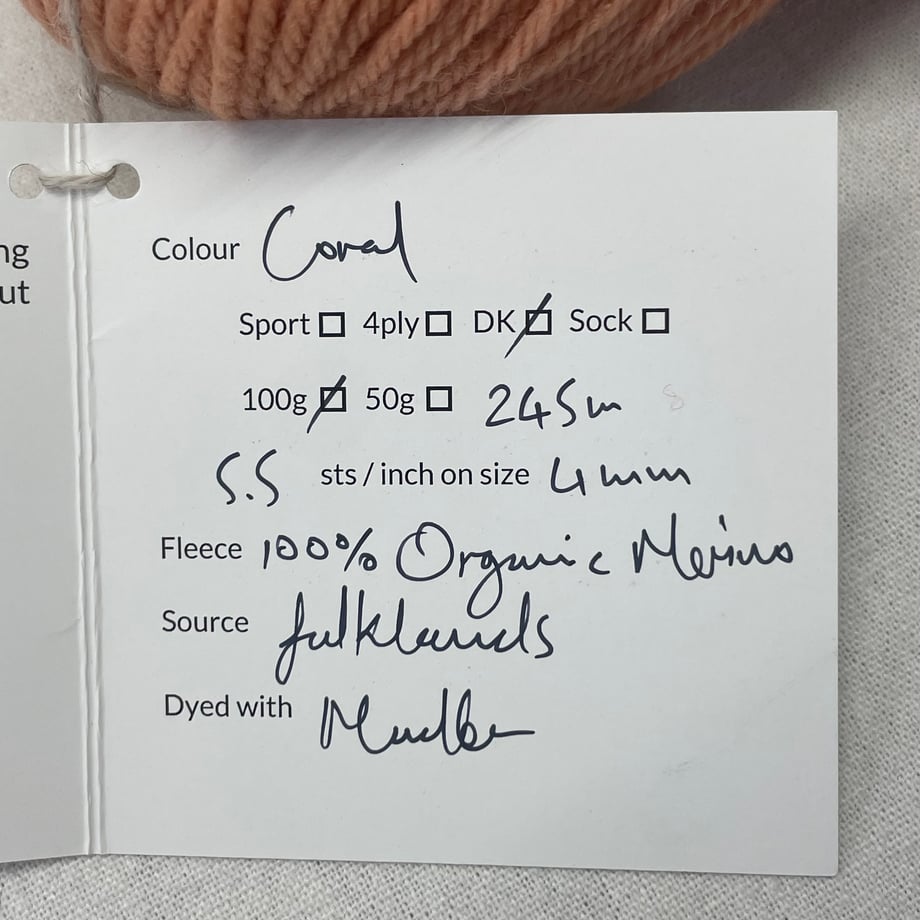 ng
ut
Colour Coral
Sport 4ply DK Sock
100g 50g 245m
5.5 sts / inch on size 4mm
Fleece 100% Organic Merino
Source falklands
Dyed with Madder